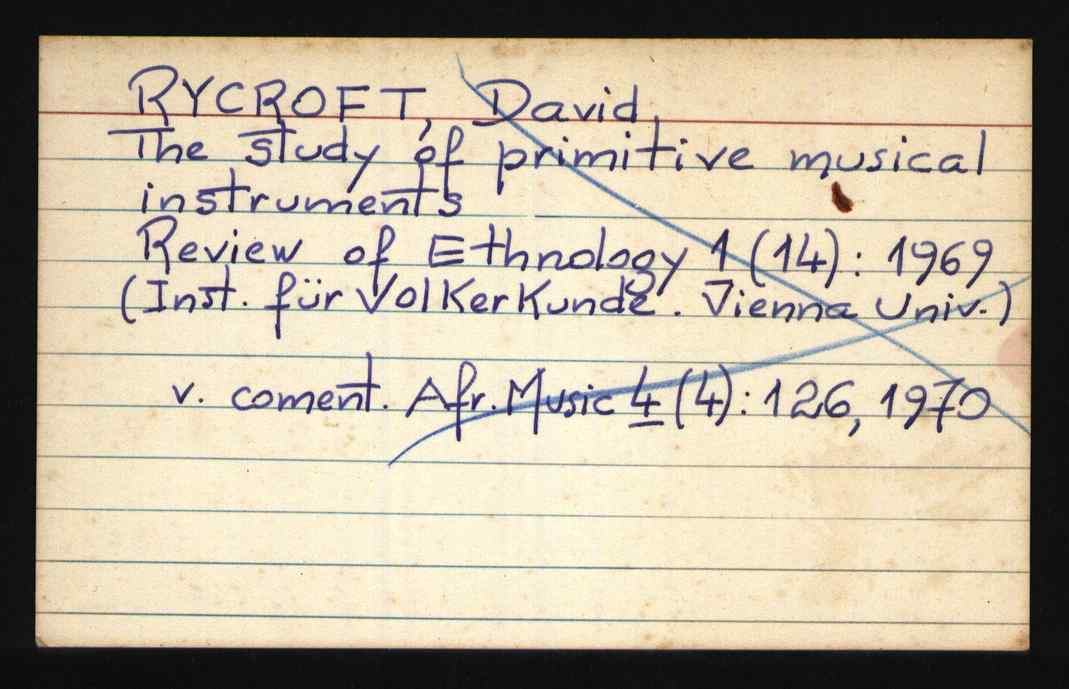 RYCROFT, David,
The study of primitive musical
instruments
Review of Ethnology 1 (14): 1969
(Inst. für VolKerKunde. Vienna Univ.)
v. coment. Afr. Music 4 (4): 126, 1970